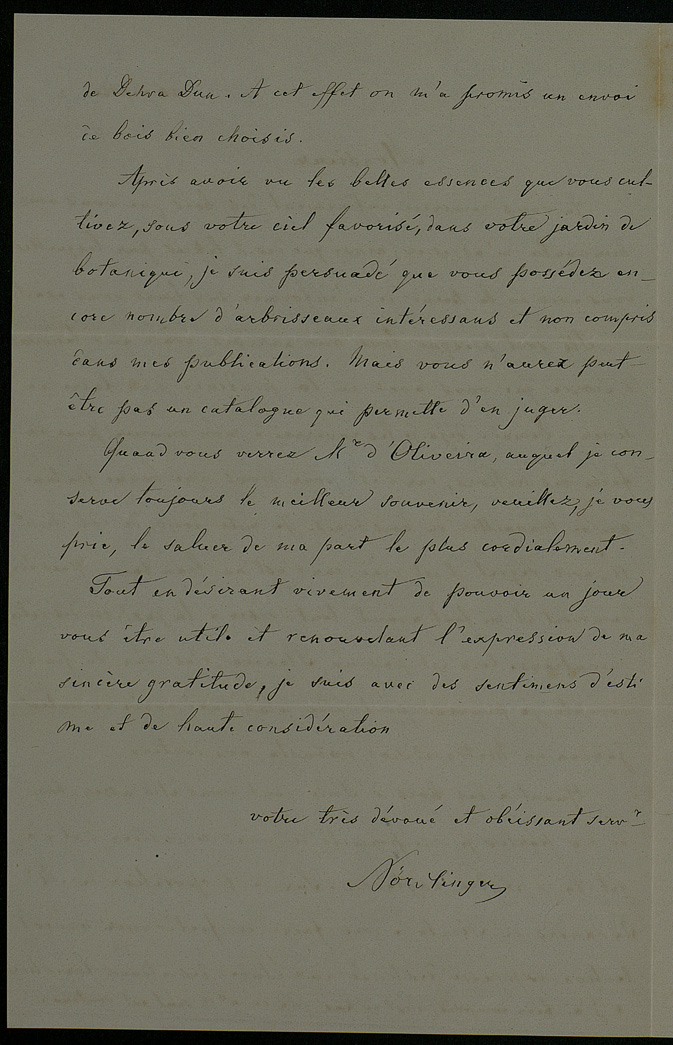 de Dehra Dun. A cet effet on m'a promis un envoi
de bois bien choisis.
Après avoir vu les belles essences que vous cul-
tivez, sous votre ciel favorisé, dans votre jardin de
botanique, je suis persuadé que vous possédez en-
core nombre d'arbrisseaux intéressans et non compris
dans mes publications. Mais vous n'aurez peut-
être pas un catalogue qui permette d'en juger.
Quand vous verrez Mr d'Oliveira, auquel je con-
serve toujours le meilleur souvenir, veuillez, je vous
prie, le saluer de ma part le plus cordialement.
Tout en désirant vivement de pouvoir un jour
vous être utile et renouvelant l'expression de ma
sincère gratitude, je suis avec des sentimens d'esti
me et de haute considération
votre très dévoué et obéissant servr
Nördlinger